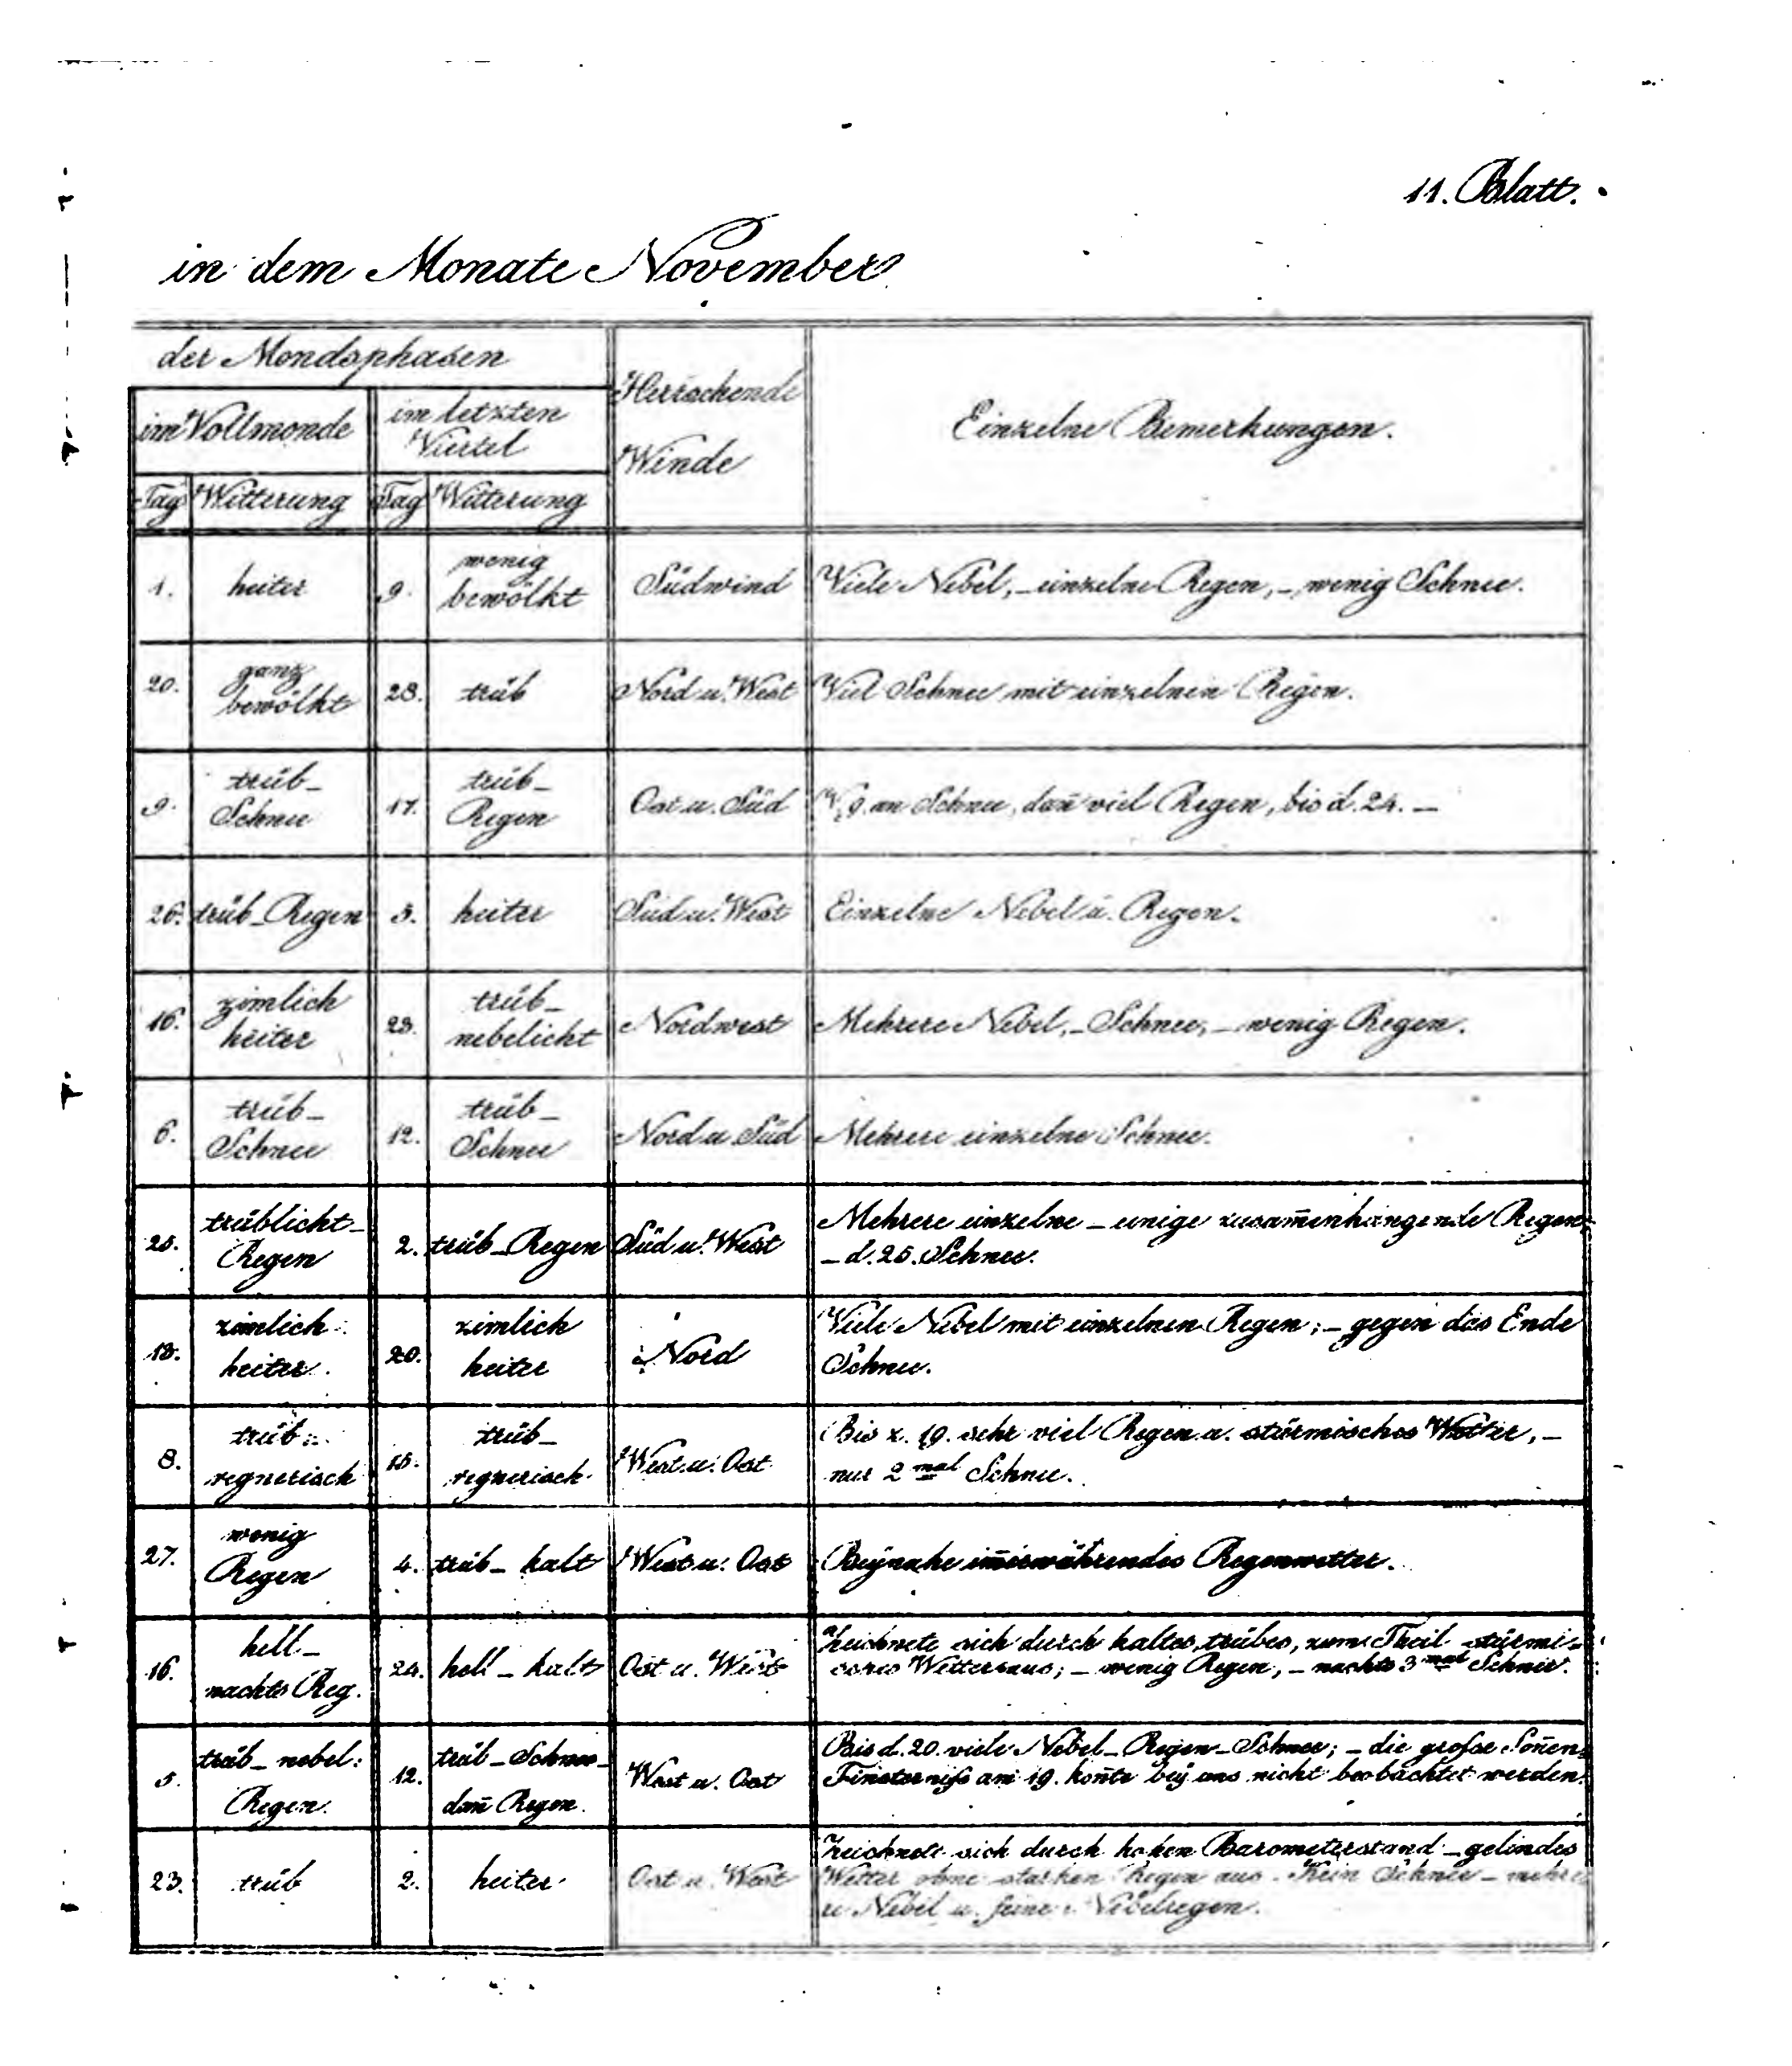 11. Blatt.
in dem Monate November
der Mondsphasen
Herrschende
Winde
Einzelne Bemerkungen.
im Vollmonde
im letzten
Viertel
Tag Witterung Tag Witterung
1. heiter 9. wenig
bewölkt Südwind Viele Nebel, – einzelne Regen, – wenig Schnee.
20. ganz
bewölkt 28. trüb Nord u. West Viel Schnee mit einzelnen Regen.
9. trüb –
Schnee 17. trüb –
Regen Ost u. Süd V. 9. an Schnee, dan̄ viel Regen, bis d. 24. –
26. trüb – Regen 5. heiter Süd u. West Einzelne Nebel u. Regen.
16. zimlich
heiter 23. trüb –
nebelicht Nordwest Mehrere Nebel, – Schnee, – wenig Regen.
6. trüb –
Schnee 12. trüb –
Schnee Nord u Süd Mehrere einzelne Schnee.
25. trüblicht –
Regen 2. trüb – Regen Süd u. West Mehrere einzelne – einige zusam̄enhängende Regen,
– d. 25. Schnee.
13. zimlich
heiter. 20. zimlich
heiter Nord Viele Nebel mit einzelnen Regen; – gegen das Ende
Schnee.
8. trüb
regnerisch 15. trüb –
regnerisch West u. Ost Bis z. 19. sehr viel Regen u. stürmisches Wetter, –
nur 2 mal Schnee.
27. wenig
Regen 4. trüb – kalt West u. Ost Beynahe im̄erwährendes Regenwetter.
16. hell –
nachts Reg. 24. hell – kalt Ost u. West Zeichnete sich durch kaltes, trübes, zum Theil stürmi-
sches Wetter aus; – wenig Regen, – nachts 3 mal Schnee.
5. trüb – nebel:
Regen. 12. trüb – Schnee –
dan̄ Regen. West u. Ost Bis d. 20. viele Nebel – Regen – Schnee; – die große Son̄en-
Finsterniß am 19. kon̄te bey uns nicht beobachtet werden.
23. trüb 2. heiter Ost u. West Zeichnete sich durch hohen Barometerstand – gelindes
Wetter ohne starken Regen aus. Kein Schnee – mehre
re Nebel u. feine Nebelregen.